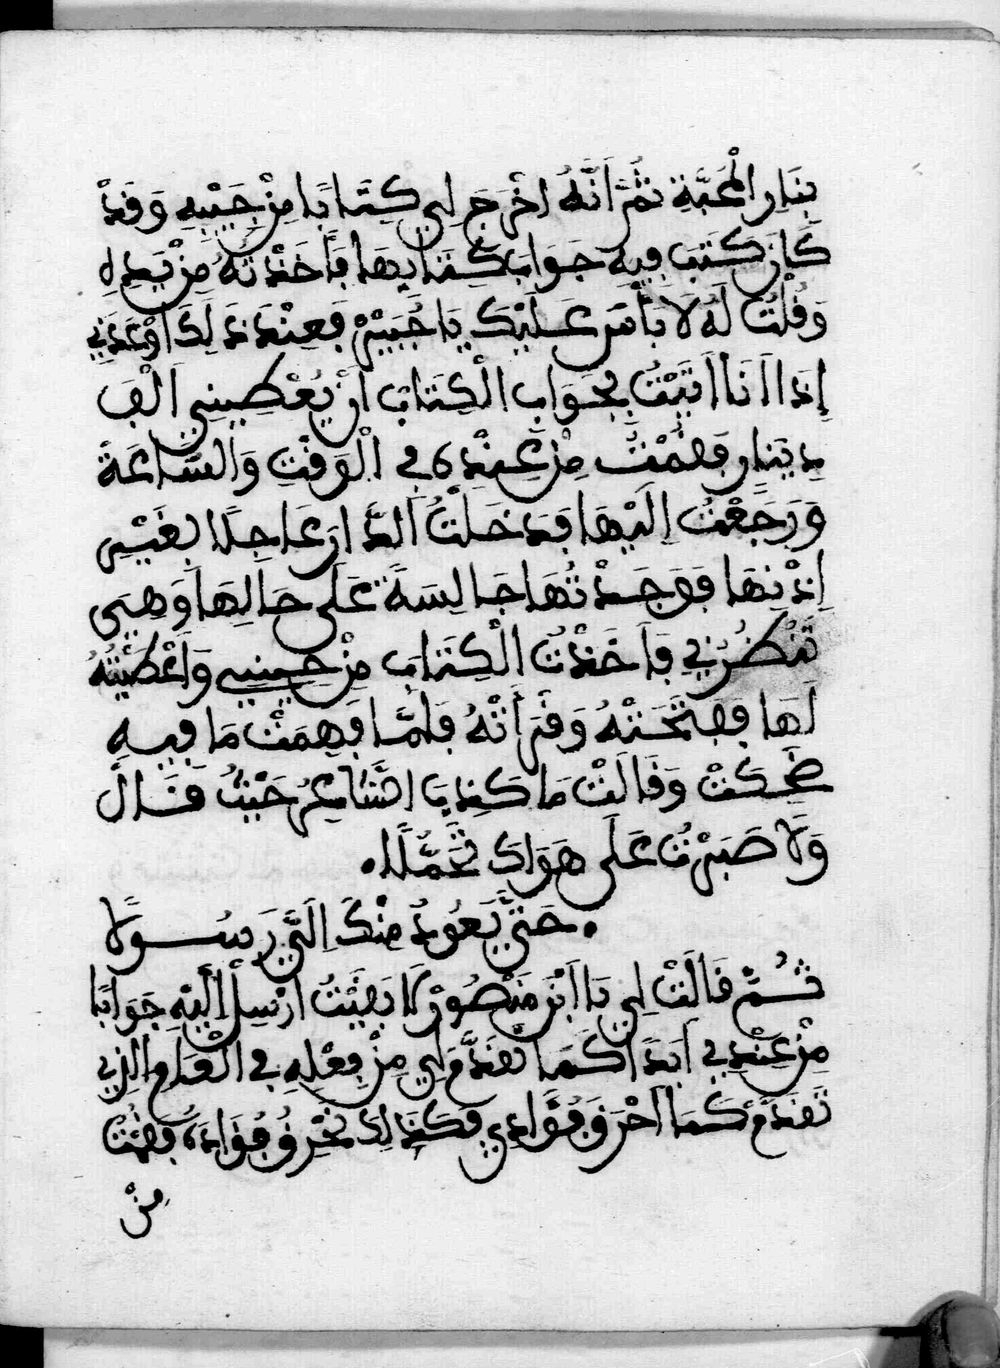 بِنَارِ الْمَحَبَّةِ ثُمَّ اَنَّهُ اخْرَجَ لِي كِتَابًا مِنْ جَيْبِهِ وَقَدْ
كَانَ كَتَبَ فِيهِ جَوَابَ كِتَابِهَا فَأَخَذْتُهُ مِنْ يَدِهِ
وَقُلْتُ لَهُ لَا بَأْسَ عَلَيْكَ يَا جُبَيْرْ فَعِنْدَ ذَلِكَ اوْعَدَنِي
إِذَا اَنَا اَتَيْتُ بِجَوَابِ الْكِتَابِ اَنْ يُعْطِينِي اَلْفَ
دِينَارٍ فَقُمْتُ مِنْ عِنْدِهِ فِي الْوَقْتِ وَالسَّاعَةْ
وَرَجَعْتُ اِلَيْهَا فَدَخَلْتُ الدَّارَ عَاجِلًا بِغَيْرِ
اِذْنِهَا فَوَجَدْتُهَا جَالِسَةً عَلَى حَالِهَا وَهِيَ
تَنْظُرُنِي فَاَخَذْتُ الْكِتَابَ مِنْ جَيْبِي وَاَعْطَيْتُهُ
لَهَا فَفَتَحَتْهُ وَقَرَأَتْهُ فَلَمَّا فَهِمَتْ مَا فِيهِ
ضَحِكَتْ وَقَالَتْ مَا كَذِبَ الشَّاعِرُ حَيْثُ قَالَ
وَلَا صَبَرْتُ عَلَى هَوَاكَ تَحَمُّلًا
حَتَّى يَعُودُ مِنْكَ اِلَيَّ رَسُولَا
ثُمَّ قَالَتْ لِي يَا اَبْنَ مَنْصُورْ لَا بَقَيْتُ اَرْسِلُ اِلَيْهِ جَوَابًا
مِنْ عِنْدِي اَبَدًا كَمَا تَقَدَّمَ لِي مِنْ فِعْلِهِ فِي الْعَامِ الذِي
تَقَدَّمَ كَمَا اَحْرَقَ فُؤَادِي فَكَذَلِكَ نَحْرِقُ فُؤَادَهُ فَقُمْتُ
مِنْ